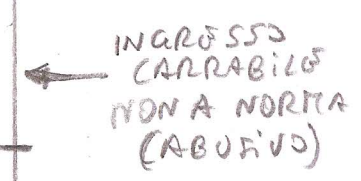 INGRESSO
CARRABILE
NON A NORMA
(ABUSIVO)